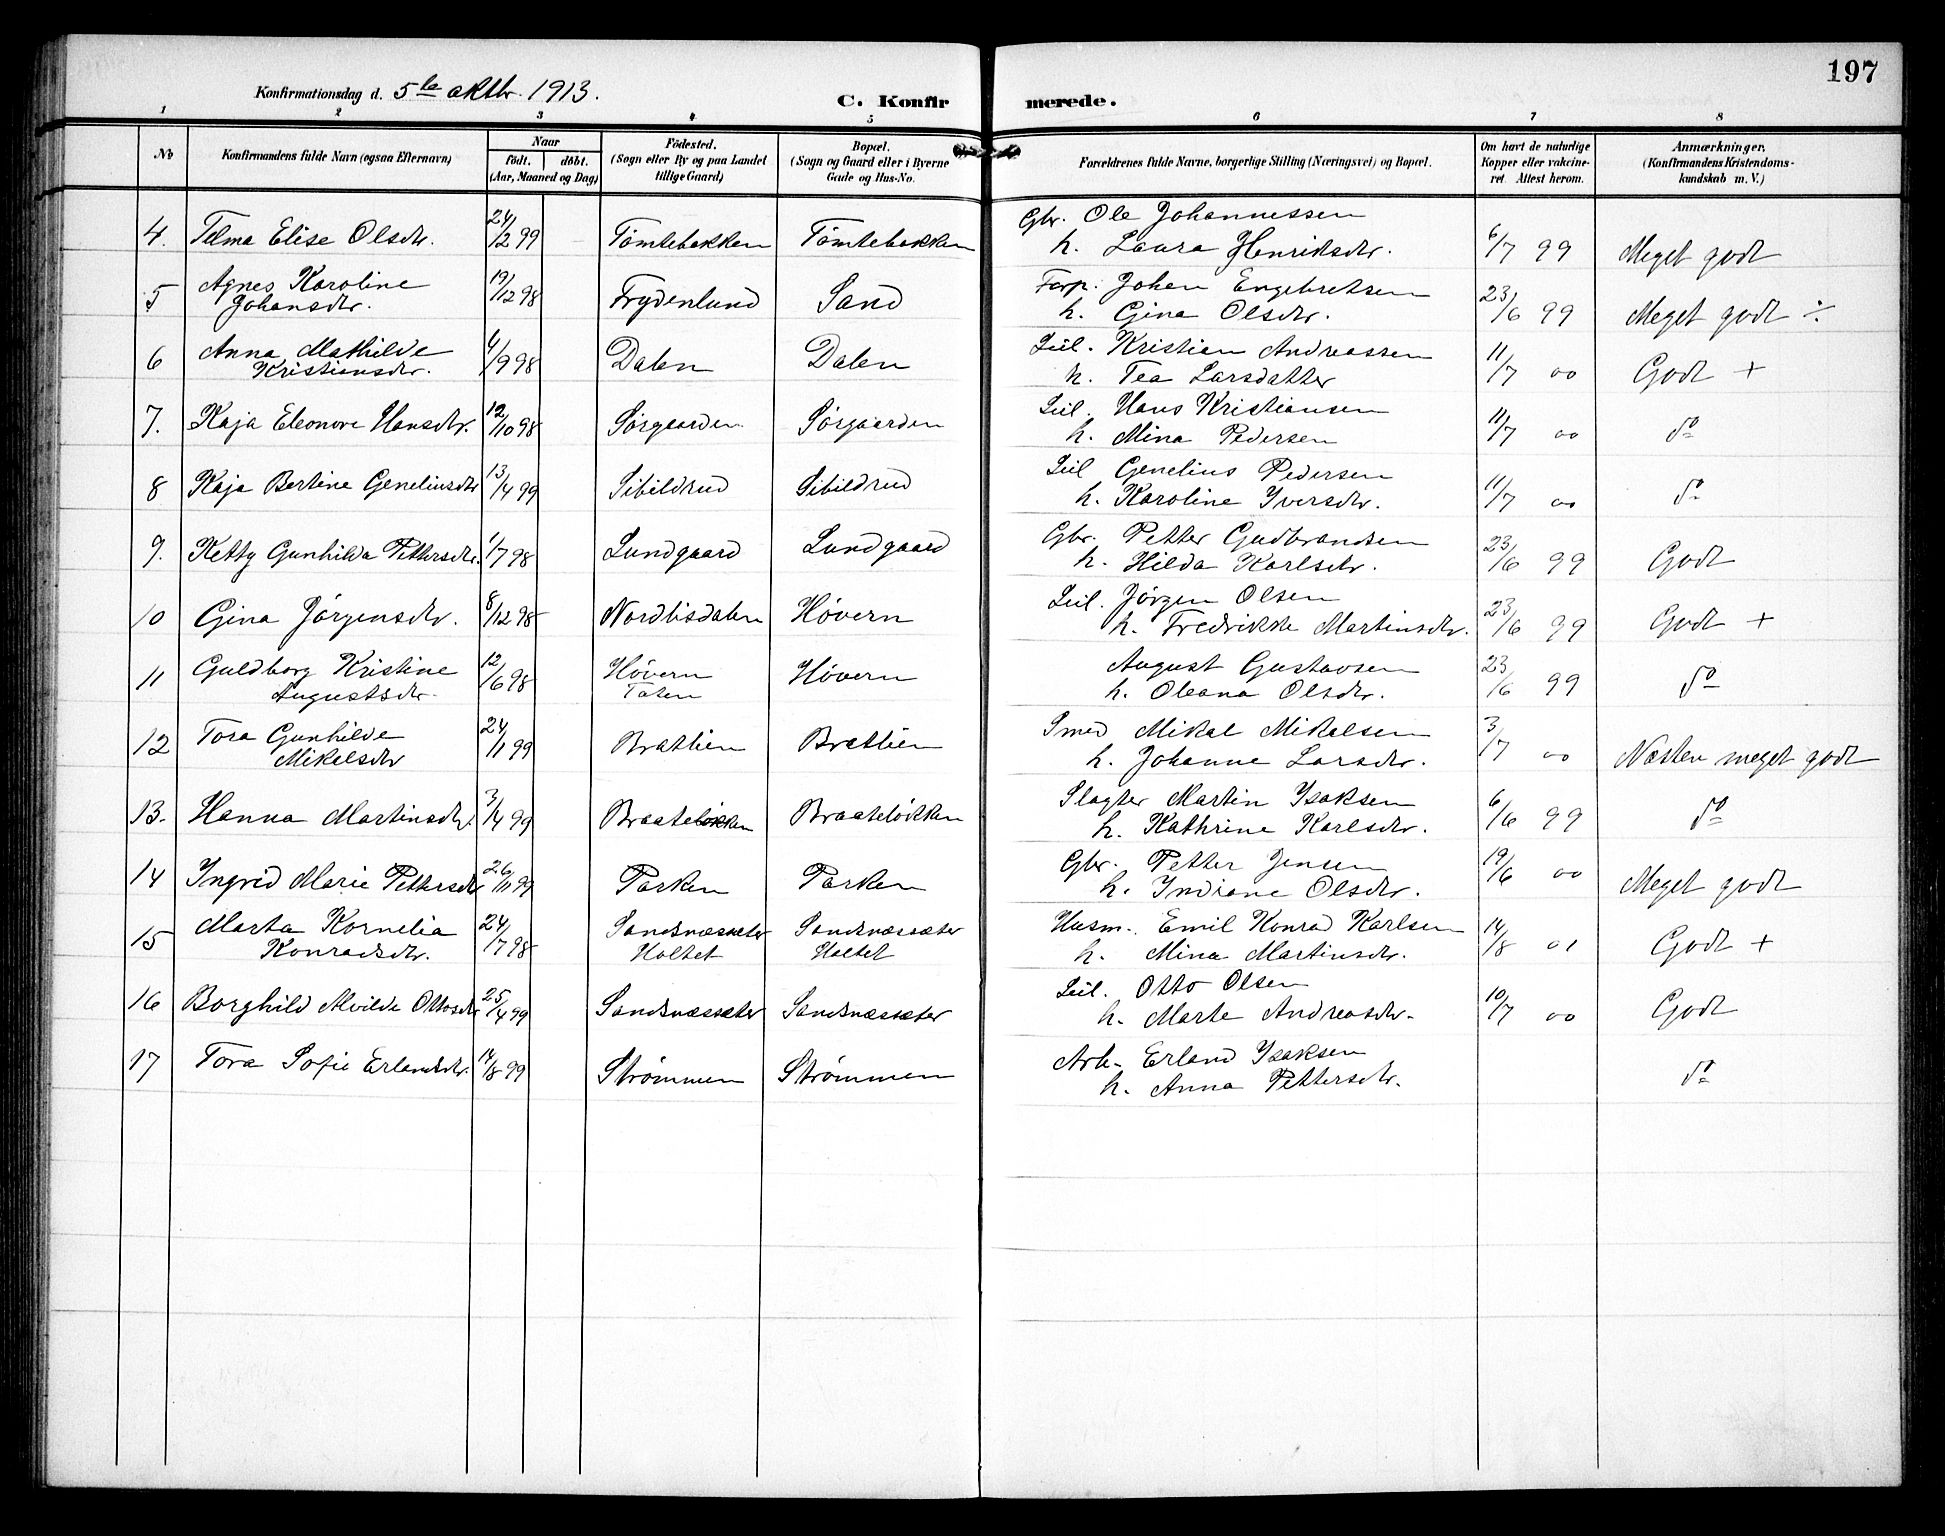 197
Konfirmationsdag d. 5te oktbr. 1913.
C. Konfirmerede.
1 2 3 4 5 6 7 8
No
Konfirmandens fulde Navn (ogsaa Efternavn)
Naar
födt. döbt.
(Aar, Maaned og Dag)
Födested.
(Sogn eller By og paa Landet
tillige Gaard)
Bopæl.
(Sogn og Gaard eller i Byerne
Gade og Hus-No.
Forældrenes fulde Navne, borgerlige Stilling (Næringsvei) og Bopæl.
Om havt de naturlige
Kopper eller vakcine-
ret. Attest herom.
Anmærkninger.
(Konfirmandens Kristendoms-
kundskab m. V.)
4. Telma Elise Olsdtr. 24/12 99 Tömtebakken Tömtebakken Gbr. Ole Johannessen
h. Laura Henriksdtr. 6/7 99 Meget godt
5 Agnes Karoline
Johansdtr. 19/12 98 Frydenlund Sand Forp. Johan Engebretsen
h. Gina Olsdtr. 23/6 99 Meget godt ÷
6 Anna Mathilde
Kristiansdtr. 4/9 98 Dalen Dalen Leil. Kristian Andreassen
h. Tea Larsdatter 11/7 00 Godt +
7. Kaja Eleonore Hansdtr. 12/10 98 Sörgaarden Sörgaarden Leil. Hans Kristiansen
h. Mina Pedersen 11/7 00 do
8 Kaja Bertine Geneliusdtr 13/4 99 Sibildrud Sibildrud Leil Genelius Pedersen
h. Karoline Iversdtr. 11/7 00 do
9. Ketty Gunhilda Pettersdtr. 1/7 98 Lundgaard Lundgaard Gbr. Petter Gudbrandsen
h. Hilda Karlsdtr. 23/6 99 Godt
10 Gina Jörgensdtr. 8/12 98 Nordlisdalen Hövern Leil. Jörgen Olsen
h. Fredrikke Martinsdtr. 23/6 99 Godt +
11 Guldborg Kristine
Augustsdtr. 12/6 98 Hövern
Toten Hövern August Gustavsen
h. Oleana Olsdtr. 23/6 99 do
12 Tora Gunhilde
Mikalsdtr 24/11 99 Bratlien Bratlien Smed Mikal Mikalsen
h. Johanne Larsdtr. 3/7 00 Næsten meget godt
13. Hanna Martinsdtr. 3/4 99 Braatelökken Braatelökken Slagter Martin Isaksen
h. Kathrine Karlsdtr. 6/6 99 do
14 Ingrid Marie Pettersdtr 26/11 99 Parken Parken Gbr. Petter Jensen
h. Indiane Olsdtr. 19/6 00 Meget godt
15 Marta Kornelia
Konradsdtr. 24/7 98 Sandsnæssæter
Holtet Sandsnæssæter
Holtet Husm. Emil Konrad Karlsen
h. Mina Martinsdtr. 14/8 01 Godt +
16 Borghild Alvilde Ottosdtr 25/4 99 Sandsnæssæter Sandsnæssæter Leil. Otto Olsen
h. Marte Andreasdtr. 10/7 00 Godt
17 Tora Sofie Erlandsdtr. 14/8 99 Strömmen Strömmen Arb. Erland Isaksen
h. Anna Pettersdtr. do